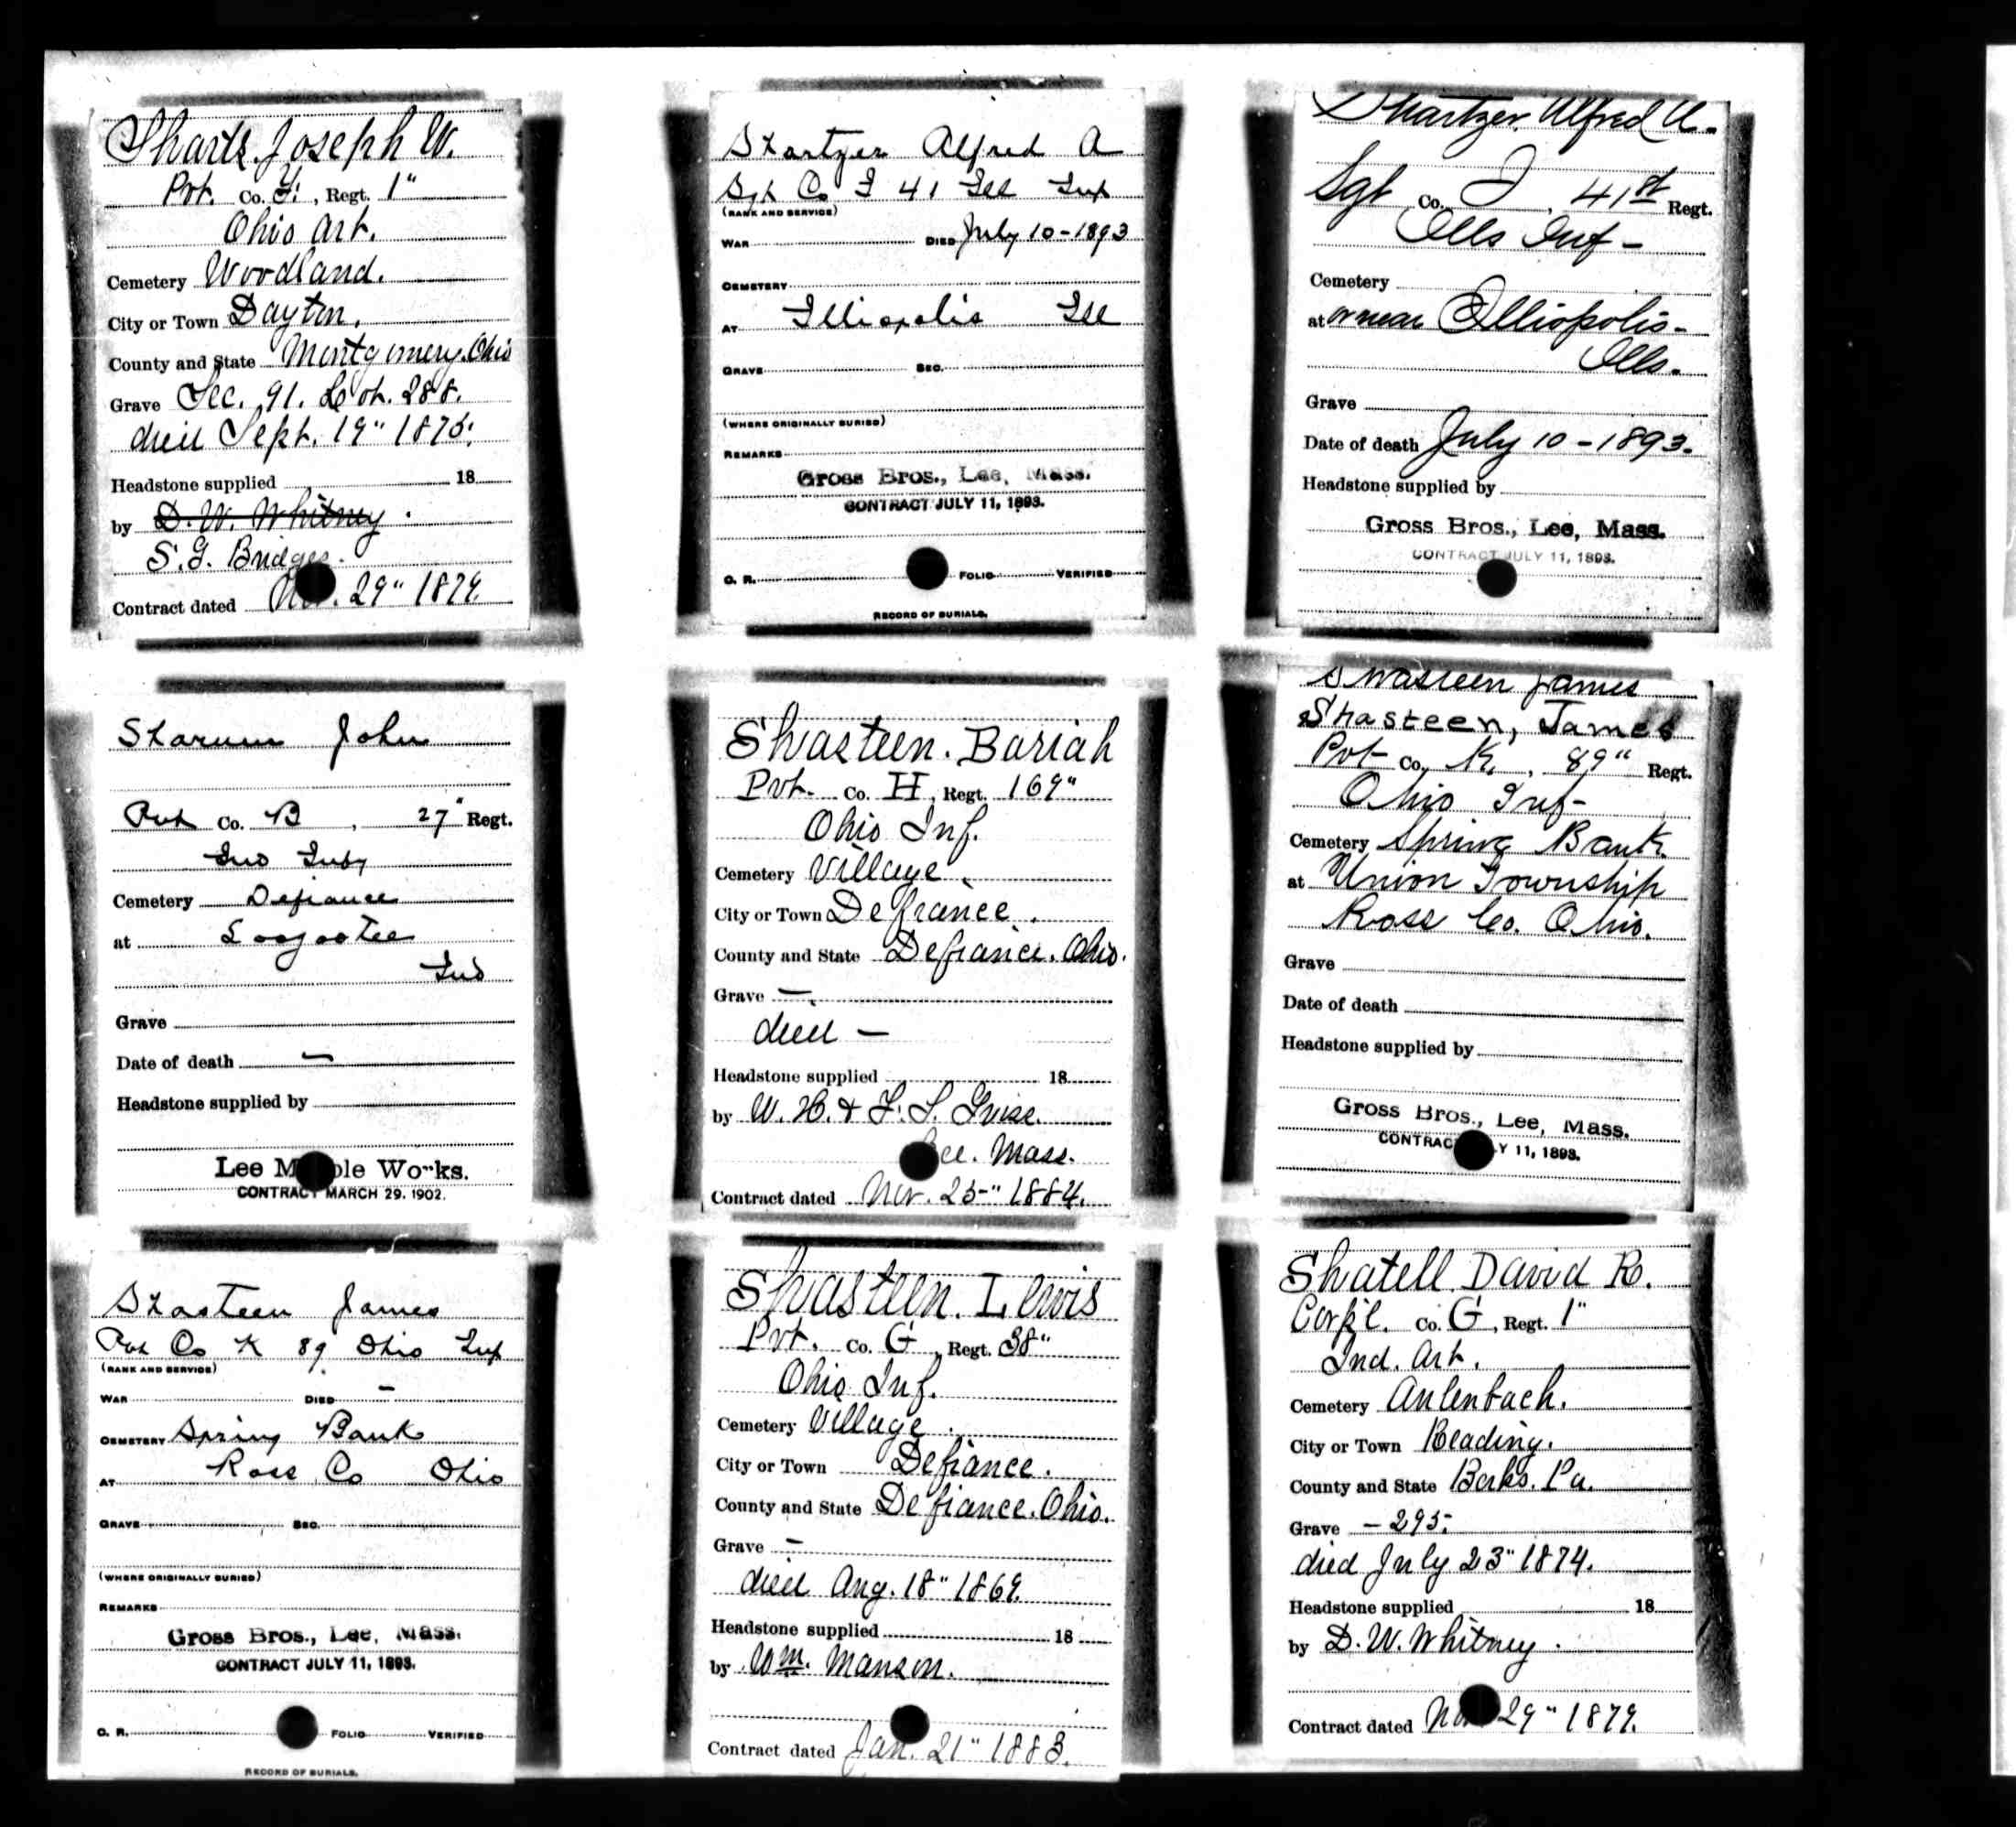 Shartz, Joseph W.
Pvt. Co. F., Regt. 1"
Ohio Art.
Cemetery Woodland.
City or Town Dayton.
County and State Montgomery, Ohio
Grave Sec. 91. Lot. 288.
died Sept. 19" 1875.
Headstone supplied 18
by D. W. Whitney.
S. G. Bridges.
Contract dated 29" 1879.
Shartzer Alfred A
Sgt Co I 41 Ill Inf
(RANK AND SERVICE)
WAR DIED July 10-1893
CEMETERY
AT Illiopolis Ill
GRAVE SEC.
(WHERE ORIGINALLY BURIED)
REMARKS
Gross Bros., Lee, Mass.
CONTRACT JULY 11, 1893.
O. R. FOLIO VERIFIED
RECORD OF BURIALS.
Shartzer, Alfred A.
Sgt Co. I, 41st Regt.
Ills Inf-
Cemetery
at or near Illiopolis-
Ills.
Grave
Date of death July 10-1893.
Headstone supplied by
Gross Bros., Lee, Mass.
CONTRACT JULY 11, 1893.
Sharum John
Pvt Co. B, 27" Regt.
Ind Inf
Cemetery Defiance
at Loogootee
Ind
Grave
Date of death —
Headstone supplied by
Lee Marble Works.
CONTRACT MARCH 29. 1902.
Shasteen. Bariah
Pvt. Co. H, Regt. 169"
Ohio Inf.
Cemetery Village.
City or Town Defiance.
County and State Defiance. Ohio.
Grave —
died —
Headstone supplied 18
by W. H. & F. S. Grise.
Lee. Mass.
Contract dated Nov. 25-" 1884.
Shasteen James
Shasteen, James
Pvt Co. K, 89" Regt.
Ohio Inf-
Cemetery Spring Bank
at Union Township
Ross Co. Ohio.
Grave
Date of death
Headstone supplied by
Gross Bros., Lee, Mass.
CONTRACT JULY 11, 1893.
Shasteen James
Pvt Co K 89 Ohio Inf
(RANK AND SERVICE)
WAR DIED —
CEMETERY Spring Bank
AT Ross Co Ohio
GRAVE SEC.
(WHERE ORIGINALLY BURIED)
REMARKS
Gross Bros., Lee, Mass.
CONTRACT JULY 11, 1893.
O. R. FOLIO VERIFIED
RECORD OF BURIALS.
Shasteen. Lewis
Pvt. Co. G, Regt. 38"
Ohio Inf.
Cemetery Village.
City or Town Defiance.
County and State Defiance. Ohio.
Grave —
died Aug. 18" 1869.
Headstone supplied 18
by Wm. Manson.
Contract dated Jan. 21" 1883.
Shatell David R.
Corp'l. Co. G, Regt. 1"
Ind. Art.
Cemetery Aulenbach.
City or Town Reading.
County and State Berks. Pa.
Grave - 295.
died July 23" 1874.
Headstone supplied 18
by D. W. Whitney.
Contract dated Nov 29" 1879.